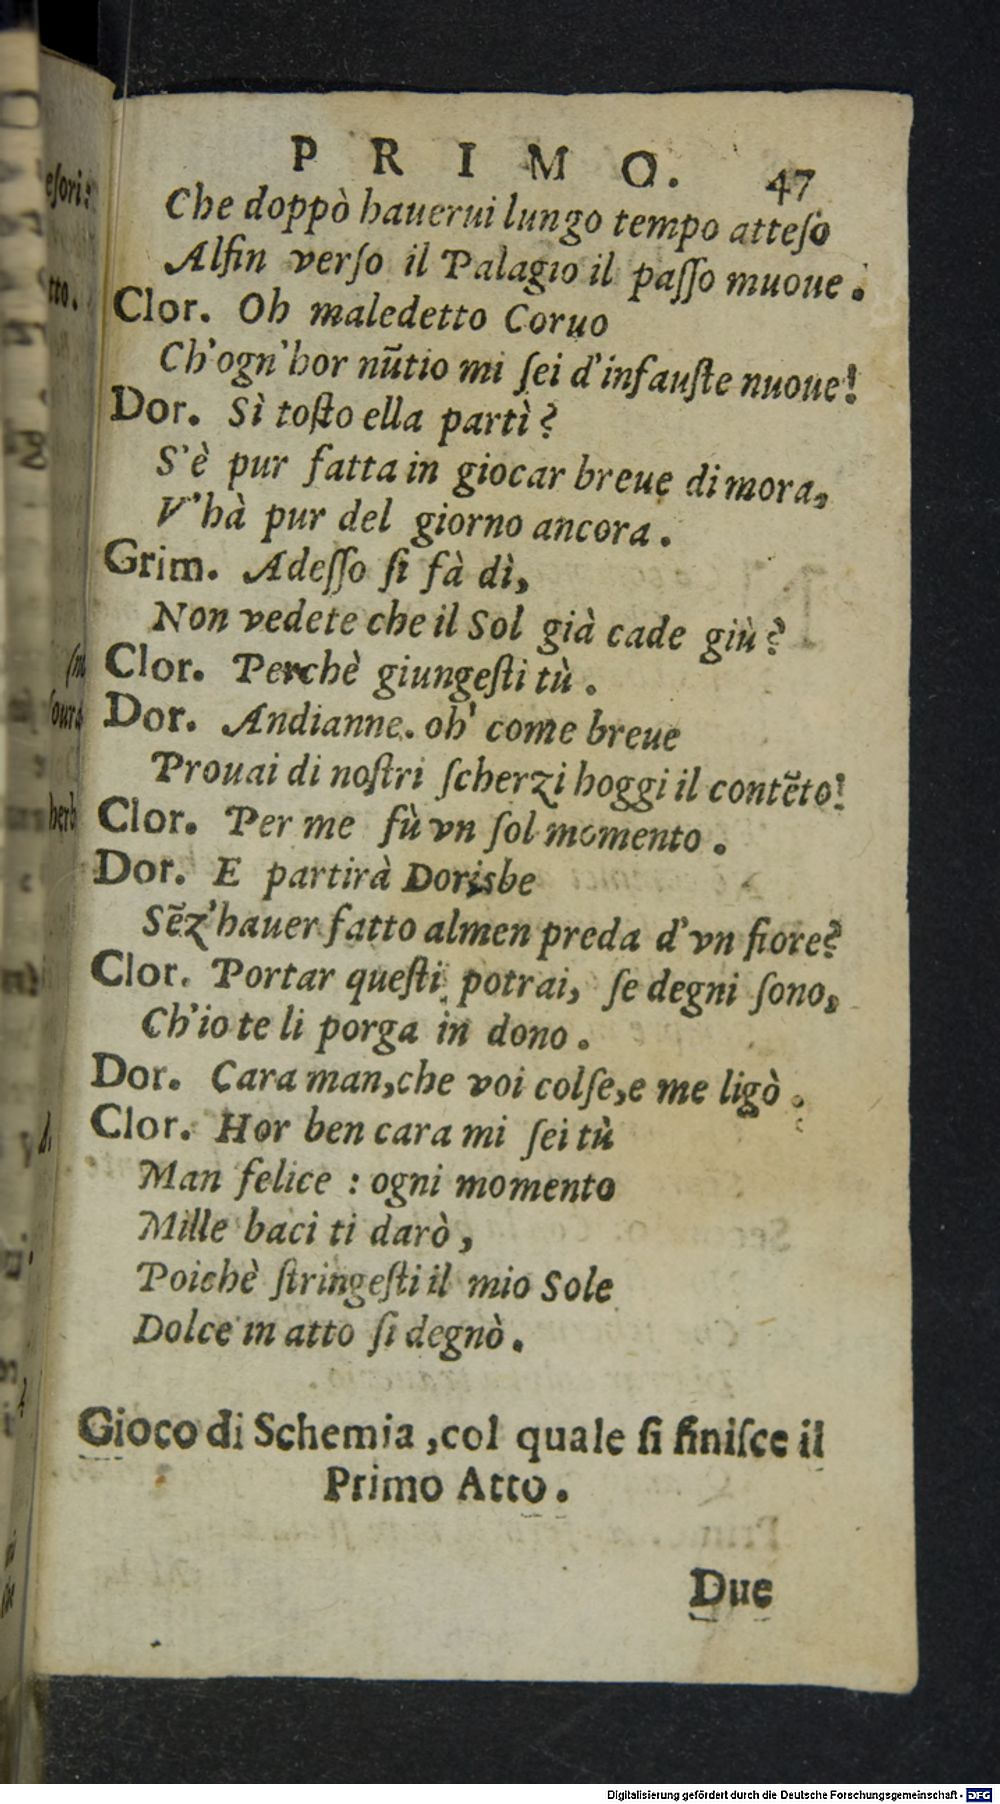 PRIMO. 47
Che doppò hauerui lungo tempo atteſo
Alfin verſo il Palagio il paſſo muoue.
Clor. Oh maledetto Coruo
Ch'ogn'hor nũtio mi ſei d'infauſte nuoue!
Dor. Sì toſto ella partì?
S'è pur fatta in giocar breue dimora,
V'hà pur del giorno ancora.
Grim. Adeſſo ſi fà dì,
Non vedete che il Sol già cade giù?
Clor. Perchè giungeſti tù.
Dor. Andianne. oh' come breue
Prouai di noſtri ſcherzi hoggi il contẽto!
Clor. Per me fù vn ſol momento.
Dor. E partirà Dorisbe
Sẽz'hauer fatto almen preda d'vn fiore?
Clor. Portar queſti potrai, ſe degni ſono,
Ch'io te li porga in dono.
Dor. Cara man,che voi colſe,e me ligò.
Clor. Hor ben cara mi ſei tù
Man felice : ogni momento
Mille baci ti darò,
Poichè ſtringeſti il mio Sole
Dolce in atto ſi degnò.
Gioco di Schemia ,col quale ſi finiſce il
Primo Atto.
Due
Digitalisierung gefördert durch die Deutsche Forschungsgemeinschaft - DFG